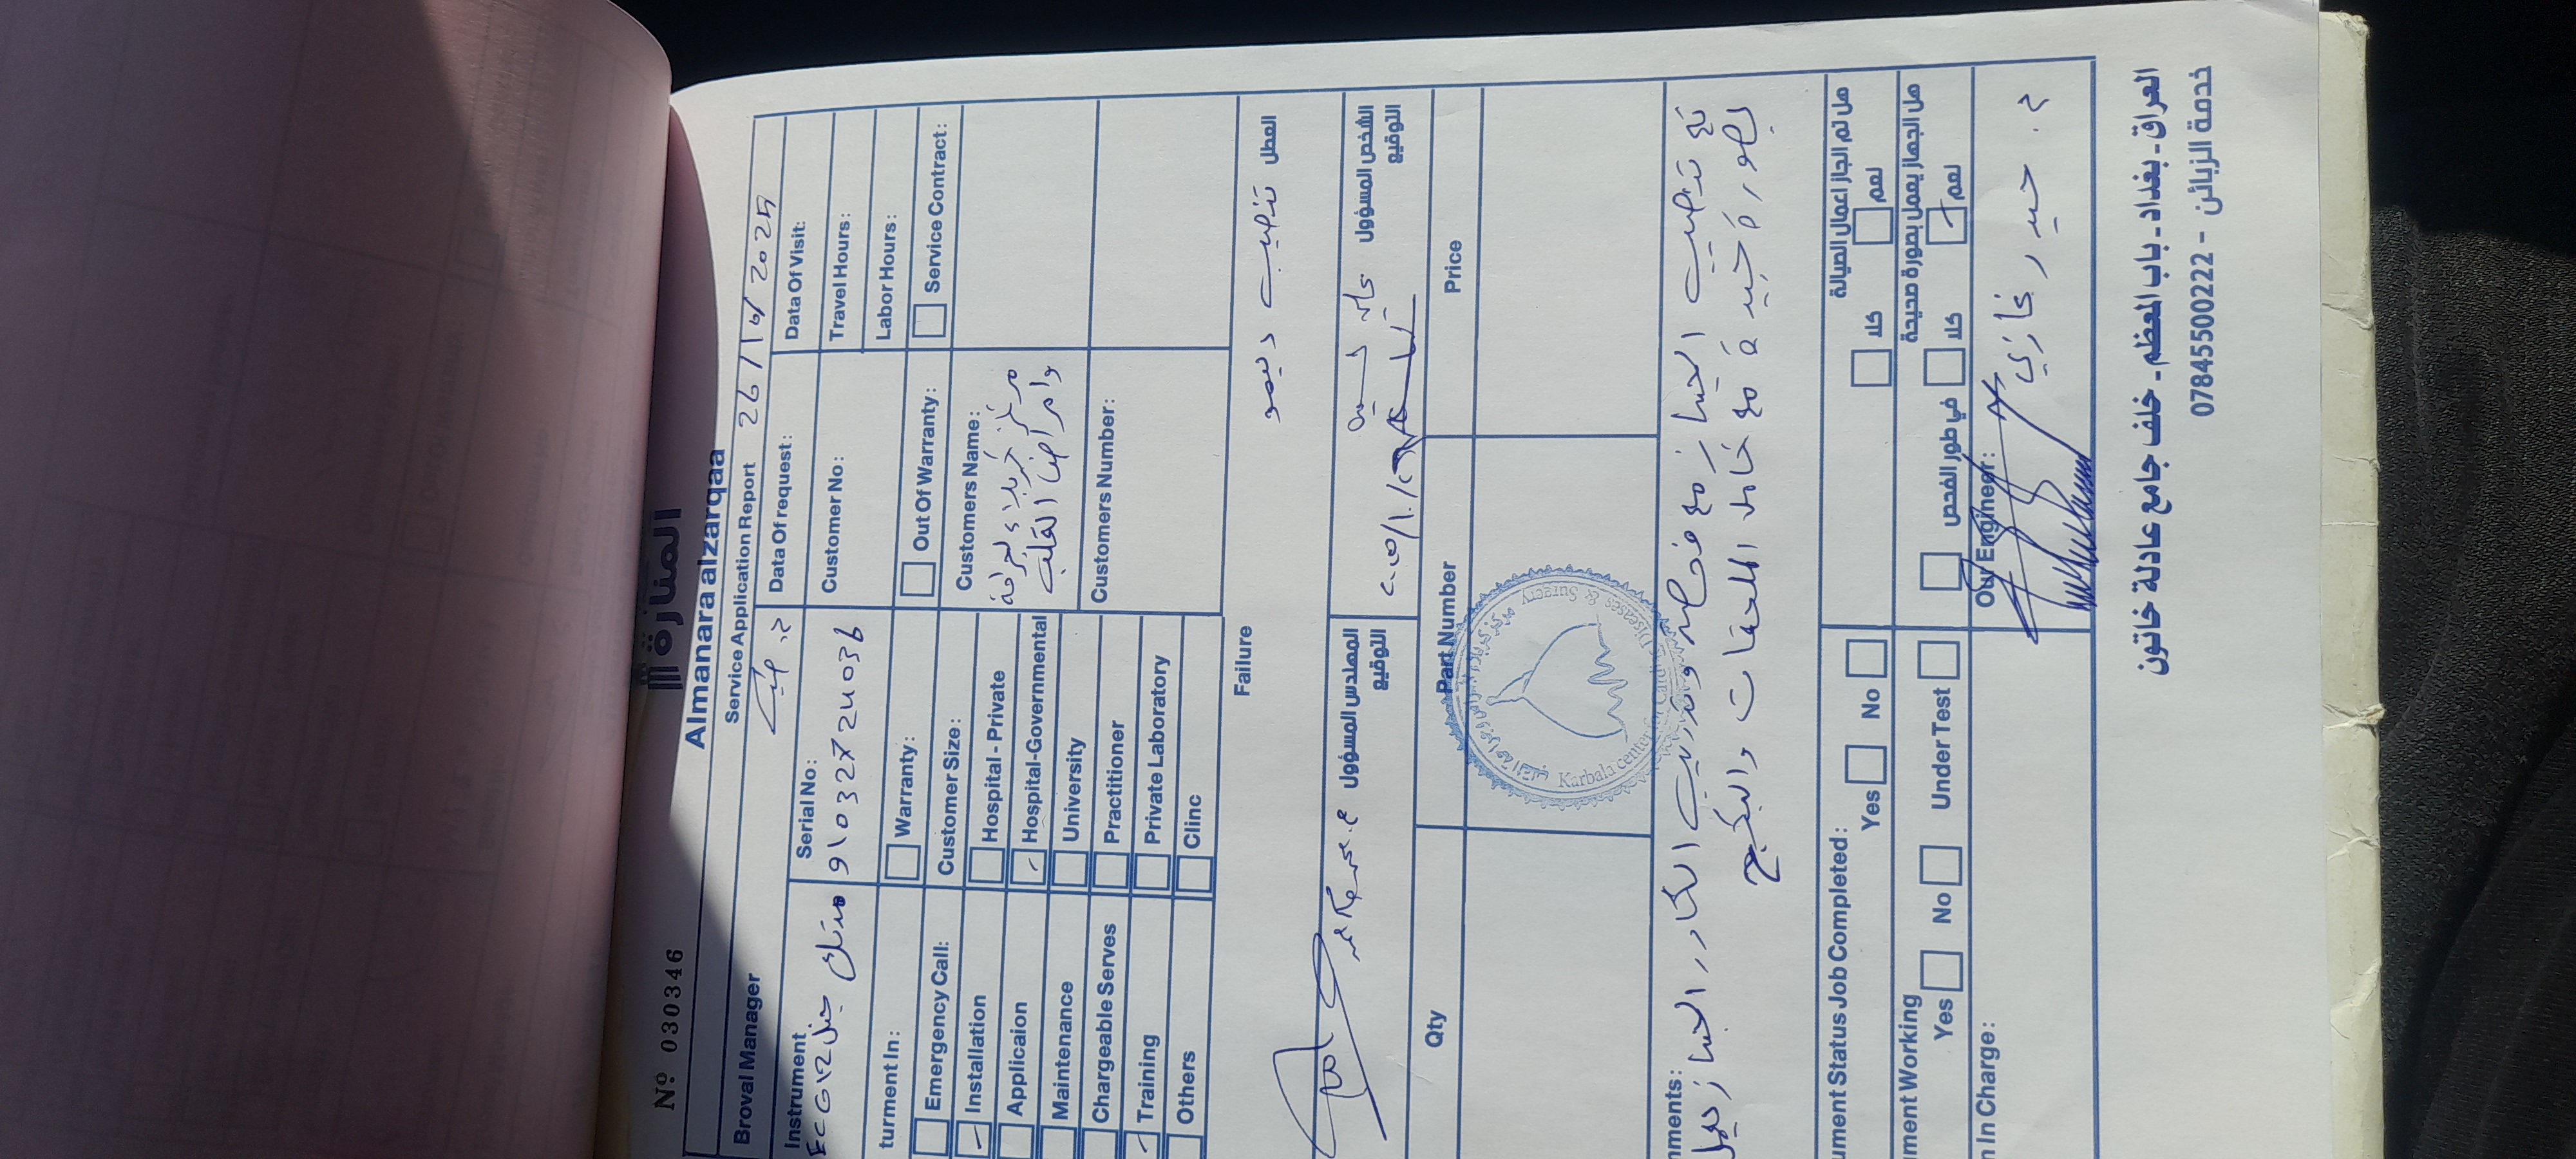 Nº 030346
المنارة ال
Almanara alzarqaa
Service Application Report 26/10/2025
Broval Manager
Instrument
Serial No:
Data Of request:
Data Of Visit:
ECG ١٢ جنل
91032724036
Customer No:
Travel Hours:
Labor Hours:
turment In:
Warranty:
Out Of Warranty:
Service Contract:
Emergency Call:
Customer Size:
Customers Name:
Installation
Hospital - Private
مركز كربلاء لجراحة
وامراض القلب
Applicaion
Hospital-Governmental
Maintenance
University
Customers Number:
Chargeable Serves
Practitioner
Training
Private Laboratory
Others
Clinc
Failure
العطل
تنصيب ديمو
المهندس المسؤول
التوقيع
الشخص المسؤول
التوقيع
Qty
Part Number
Price
Karbala center for Cardiac Diseases & Surgery
nments:
تم تنصيب الجهاز مع فحصه وتدريب الكادر الجهاز يعمل
بصورة جيدة مع كامل الملحقات والبكيج
ument Status Job Completed:
Yes
No
هل تم انجاز اعمال الصيانة
كلا
نعم
ument Working
Yes
No
Under Test
هل الجهاز يعمل بصورة صحيحة
في طور الفحص
كلا
نعم
n In Charge:
Our Engineer:
م. حيدر غازي
العراق - بغداد - باب المعظم - خلف جامع عادلة خاتون
خدمة الزبائن - 07845500222